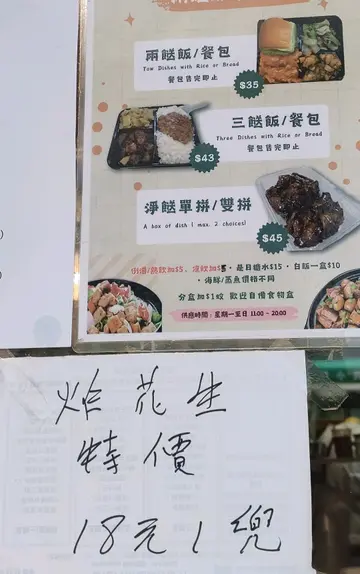 兩餸飯/餐包
Tow Dishes with Rice or Bread
餐包售完即止
$35
三餸飯/餐包
Three Dishes with Rice or Bread
餐包售完即止
$43
淨餸單拼/雙拼
A box of dish ( max. 2 choices)
$45
例湯/熱飲加$5，凍飲加$8，是日糖水$15，白飯一盒$10
，海鮮/蒸魚價格不同
分盒加1蚊 歡迎自備食物盒
供應時間：星期一至日 11:00 - 20:00
焓花生
特價
18元1兜